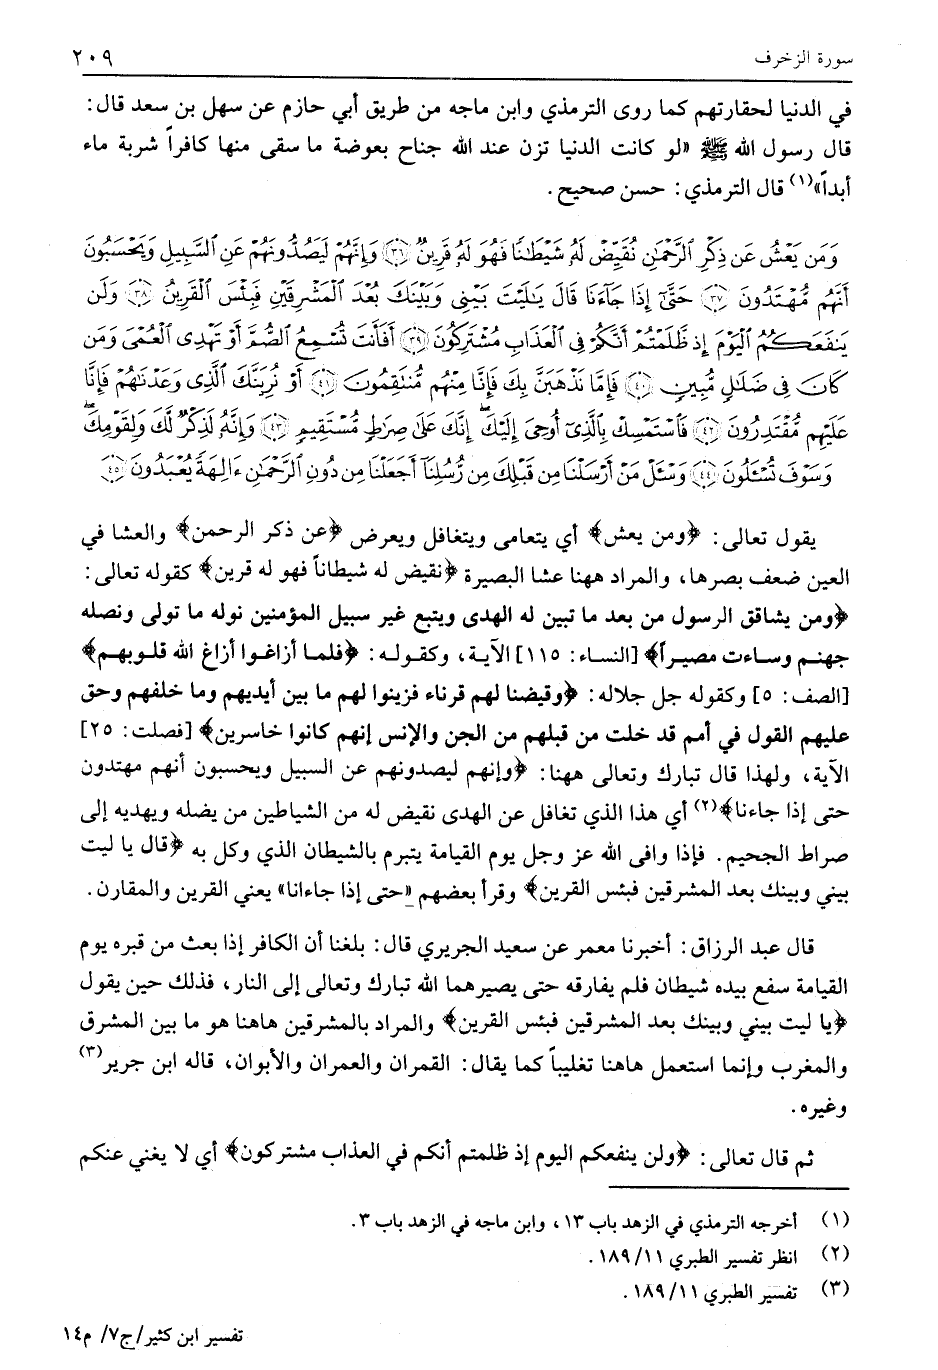 سورة الزخرف ٢٠٩
في الدنيا لحقارتهم كما روى الترمذي وابن ماجه من طريق أبي حازم عن سهل بن سعد قال:
قال رسول الله ﷺ «لو كانت الدنيا تزن عند الله جناح بعوضة ما سقى منها كافراً شربة ماء
أبداً»(١) قال الترمذي: حسن صحيح.
وَمَن يَعْشُ عَن ذِكْرِ الرَّحْمَٰنِ نُقَيِّضْ لَهُ شَيْطَٰنًا فَهُوَ لَهُ قَرِينٌ ﴿٣٦﴾ وَإِنَّهُمْ لَيَصُدُّونَهُمْ عَنِ السَّبِيلِ وَيَحْسَبُونَ
أَنَّهُم مُّهْتَدُونَ ﴿٣٧﴾ حَتَّىٰٓ إِذَا جَآءَنَا قَالَ يَٰلَيْتَ بَيْنِي وَبَيْنَكَ بُعْدَ الْمَشْرِقَيْنِ فَبِئْسَ الْقَرِينُ ﴿٣٨﴾ وَلَن
يَنفَعَكُمُ الْيَوْمَ إِذ ظَّلَمْتُمْ أَنَّكُمْ فِي الْعَذَابِ مُشْتَرِكُونَ ﴿٣٩﴾ أَفَأَنتَ تُسْمِعُ الصُّمَّ أَوْ تَهْدِي الْعُمْيَ وَمَن
كَانَ فِي ضَلَٰلٍ مُّبِينٍ ﴿٤٠﴾ فَإِمَّا نَذْهَبَنَّ بِكَ فَإِنَّا مِنْهُم مُّنتَقِمُونَ ﴿٤١﴾ أَوْ نُرِيَنَّكَ الَّذِي وَعَدْنَٰهُمْ فَإِنَّا
عَلَيْهِم مُّقْتَدِرُونَ ﴿٤٢﴾ فَاسْتَمْسِكْ بِالَّذِيٓ أُوحِيَ إِلَيْكَ ۖ إِنَّكَ عَلَىٰ صِرَٰطٍ مُّسْتَقِيمٍ ﴿٤٣﴾ وَإِنَّهُ لَذِكْرٌ لَّكَ وَلِقَوْمِكَ ۖ
وَسَوْفَ تُسْـَٔلُونَ ﴿٤٤﴾ وَسْـَٔلْ مَنْ أَرْسَلْنَا مِن قَبْلِكَ مِن رُّسُلِنَآ أَجَعَلْنَا مِن دُونِ الرَّحْمَٰنِ ءَالِهَةً يُعْبَدُونَ ﴿٤٥﴾
يقول تعالى: ﴿ومن يعش﴾ أي يتعامى ويتغافل ويعرض ﴿عن ذكر الرحمن﴾ والعشا في
العين ضعف بصرها، والمراد ههنا عشا البصيرة ﴿نقيض له شيطاناً فهو له قرين﴾ كقوله تعالى:
﴿ومن يشاقق الرسول من بعد ما تبين له الهدى ويتبع غير سبيل المؤمنين نوله ما تولى ونصله
جهنم وساءت مصيراً﴾ [النساء: ١١٥] الآية، وكقوله: ﴿فلما أزاغوا أزاغ الله قلوبهم﴾
[الصف: ٥] وكقوله جل جلاله: ﴿وقيضنا لهم قرناء فزينوا لهم ما بين أيديهم وما خلفهم وحق
عليهم القول في أمم قد خلت من قبلهم من الجن والإنس إنهم كانوا خاسرين﴾ [فصلت: ٢٥]
الآية، ولهذا قال تبارك وتعالى ههنا: ﴿وإنهم ليصدونهم عن السبيل ويحسبون أنهم مهتدون
حتى إذا جاءنا﴾(٢) أي هذا الذي تغافل عن الهدى نقيض له من الشياطين من يضله ويهديه إلى
صراط الجحيم. فإذا وافى الله عز وجل يوم القيامة يتبرم بالشيطان الذي وكل به ﴿قال يا ليت
بيني وبينك بعد المشرقين فبئس القرين﴾ وقرأ بعضهم «حتى إذا جاءانا» يعني القرين والمقارن.
قال عبد الرزاق: أخبرنا معمر عن سعيد الجريري قال: بلغنا أن الكافر إذا بعث من قبره يوم
القيامة سفع بيده شيطان فلم يفارقه حتى يصيرهما الله تبارك وتعالى إلى النار، فذلك حين يقول
﴿يا ليت بيني وبينك بعد المشرقين فبئس القرين﴾ والمراد بالمشرقين هاهنا هو ما بين المشرق
والمغرب وإنما استعمل هاهنا تغليباً كما يقال: القمران والعمران والأبوان، قاله ابن جرير(٣)
وغيره.
ثم قال تعالى: ﴿ولن ينفعكم اليوم إذ ظلمتم أنكم في العذاب مشتركون﴾ أي لا يغني عنكم
(١) أخرجه الترمذي في الزهد باب ١٣، وابن ماجه في الزهد باب ٣.
(٢) انظر تفسير الطبري ١٨٩/١١.
(٣) تفسير الطبري ١٨٩/١١.
تفسير ابن كثير/ج٧/ م١٤